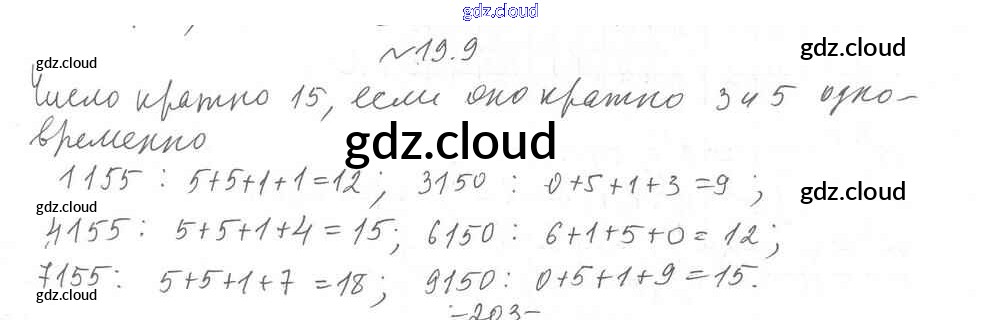 gdz.cloud
№19.9
gdz.cloud
gdz.cloud
Число кратно 15, если оно кратно 3 и 5 одно-
временно
gdz.cloud
1155 : 5+5+1+1=12; 3150 : 0+5+1+3=9;
gdz.cloud
gdz.cloud
4155: 5+5+1+4=15; 6150: 6+1+5+0=12;
7155: 5+5+1+7=18; 9150: 0+5+1+9=15.
gdz.cloud
-203-